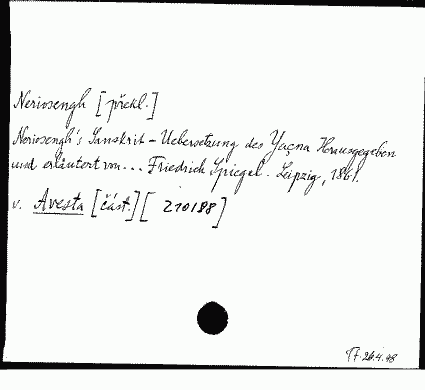 Neriosengh [překl.]
Neriosengh's Sanskrit-Uebersetzung des Yaçna Herausgegeben
und erläutert von... Friedrich Spiegel. Leipzig, 1861.
v. Avesta [část.] [ 210188 ]
26.4.48